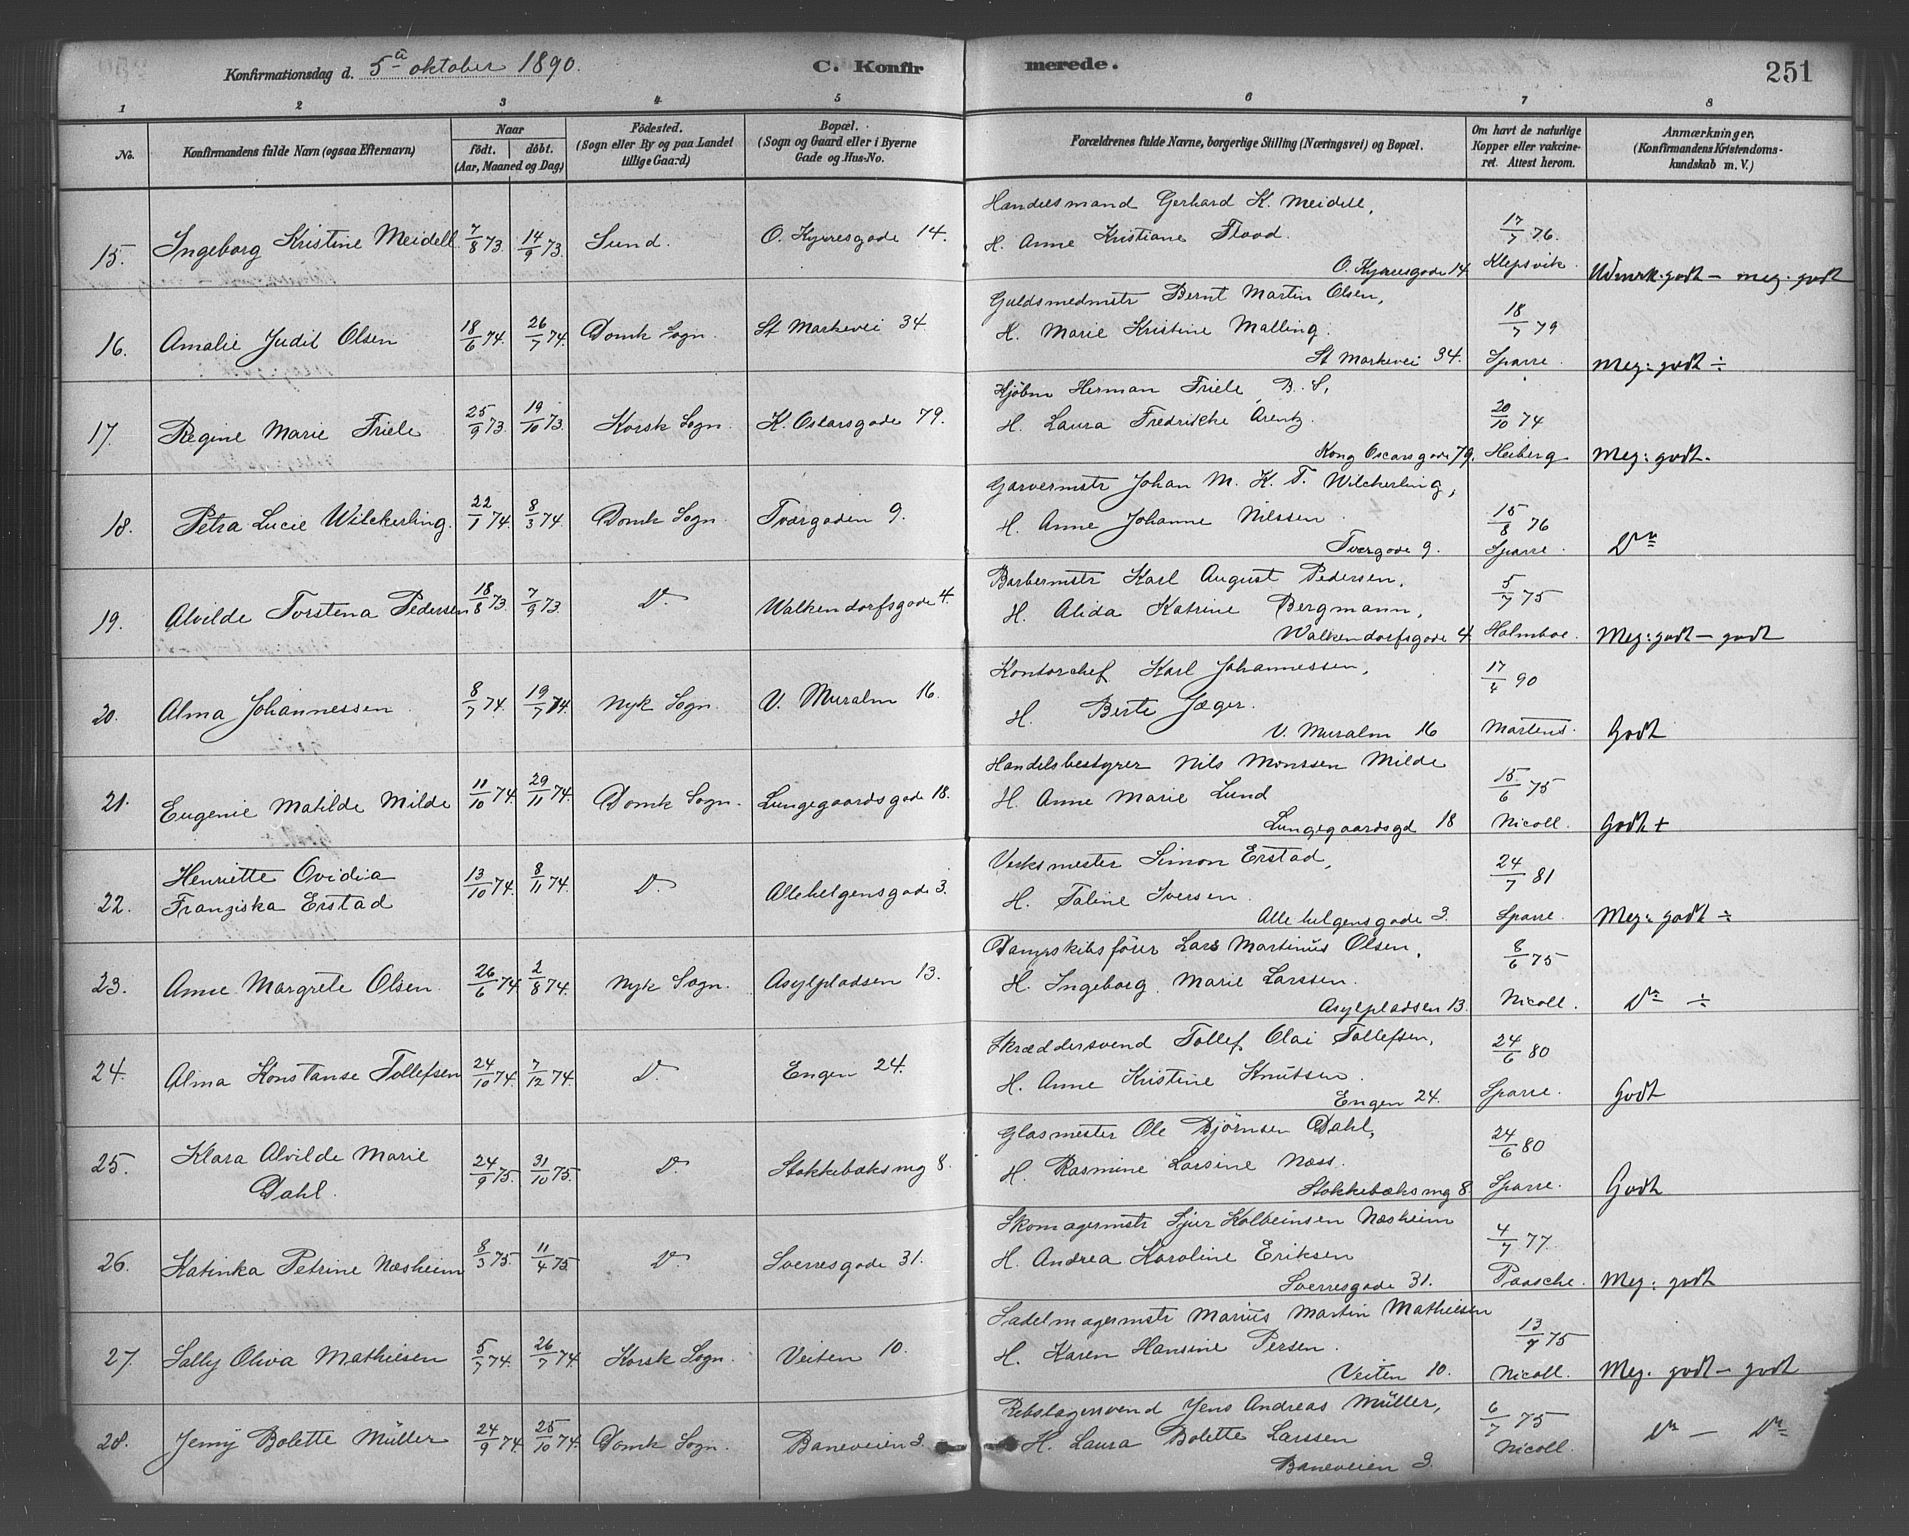 Konfirmationsdag d. 5te oktober 1890.
C. Konfirmerede.
251
1 2 3 4 5 6 7 8
No.
Konfirmandens fulde Navn (ogsaa Efternavn)
Naar
Födt. döbt.
(Aar, Maaned og Dag)
Födested.
(Sogn eller By og paa Landet
tillige Gaard)
Bopæl.
(Sogn og Gaard eller i Byerne
Gade og Hus-No.
Forældrenes fulde Navne, borgerlige Stilling (Næringsvei) og Bopæl.
Om havt de naturlige
Kopper eller vakcine-
ret. Attest herom.
Anmærkninger,
(Konfirmandens Kristendoms-
kundskab m. V.)
15. Ingeborg Kristine Meidell 7/8 73. 14/9 73. Sund. O. Kyrresgade 14.
Handelsmand Gerhard K. Meidell,
H. Anne Kristiane Flood.
O. Kyrresgade 14
17/7 76.
Klepsvik.
Udmrk. godt – meg. godt
16. Amalie Judit Olsen 18/6 74. 26/7 74. Domk Sogn. St Markevei 34
Guldsmedmstr Bernt Martin Olsen,
H. Marie Kristine Malling.
St Markevei 34.
18/7 79
Sparre.
Meg: godt ÷
17. Regine Marie Friele 25/9 73. 19/10 73. Korsk Sogn. K. Oscarsgade 79.
Kjøbm Herman Friele, B. S,
H. Laura Fredrikke Arentz.
Kong Oscarsgade 79.
20/10 74
Heiberg
Meg: godt.
18. Petra Lucie Wilckerling. 22/1 74. 8/3 74. Domk Sogn. Tværgaden 9.
Garvermstr Johan M. K. T. Wilckerling,
H. Anne Johanne Nilssen.
Tværgade 9.
15/8 76
Sparre.
Do
19. Alvilde Torstena Pedersen 18/8 73. 7/9 73. D. Walkendorfsgade 4.
Barbermstr Karl August Pedersen,
H. Alida Katrine Bergmann,
Walkendorfsgade 4
5/7 75
Holmboe.
Meg: godt – godt
20. Alma Johannessen 8/7 74. 19/7 74. Nyk Sogn. V. Muralm 16.
Kontorchef Karl Johannessen,
H. Berte Jæger.
V. Muralm 16
17/4 90
Martens.
Godt
21. Eugenie Matilde Milde 11/10 74. 29/11 74. Domk Sogn. Lungegaardsgade 18.
Handelsbestyrer Nils Monssen Milde
H. Anne Marie Lund
Lungegaardsgd 18
15/6 75
Nicoll.
Godt +
22. Henriette Ovidia
Franziska Erstad 13/10 74. 8/11 74. D. Allehelgensgade 3.
Verksmester Simon Erstad,
H. Taline Iversen.
Alle helgensgade 3.
24/7 81
Sparre.
Meg: godt ÷
23. Anne Margrete Olsen. 26/6 74. 2/8 74. Nyk Sogn. Asylpladsen 13.
Dampskibsfører Lars Martinus Olsen,
H. Ingeborg Marie Larssen.
Asylpladsen 13.
8/6 75
Nicoll.
Do ÷
24. Alma Konstanse Tollefsen 24/10 74. 7/12 74. D. Engen 24.
Skræddersvend Tollef Olai Tollefsen,
H. Anne Kristine Knutsen.
Engen 24.
24/6 80
Sparre.
Godt
25. Klara Alvilde Marie
Dahl. 24/9 75. 31/10 75. D. Stokkebæksmg 8.
Glasmester Ole Bjørnsen Dahl,
H. Rasmine Larsine Næss.
Stokkebæksmg 8.
24/6 80
Sparre.
Godt
26. Katinka Petrine Næsheim 8/3 75. 11/4 75. D. Sverresgade 31.
Skomagermstr Sjur Kolbeinsen Næsheim
H. Andrea Karoline Eriksen
Sverresgade 31.
4/7 77.
Paasche.
Meg: godt
27. Sally Oliva Mathiesen 5/7 74. 26/7 74. Korsk Sogn. Veiten 10.
Sadelmagermstr Marius Martin Mathiesen
H. Karen Hansine Persen.
Veiten 10.
13/7 75
Nicoll.
Meg. godt – godt
28. Jenny Bolette Müller 24/9 74. 25/10 74. Domk Sogn. Baneveien 3.
Rebslagersvend Jens Andreas Müller,
H. Laura Bolette Larssen
Baneveien 3.
6/7 75
Nicoll.
Do – Do